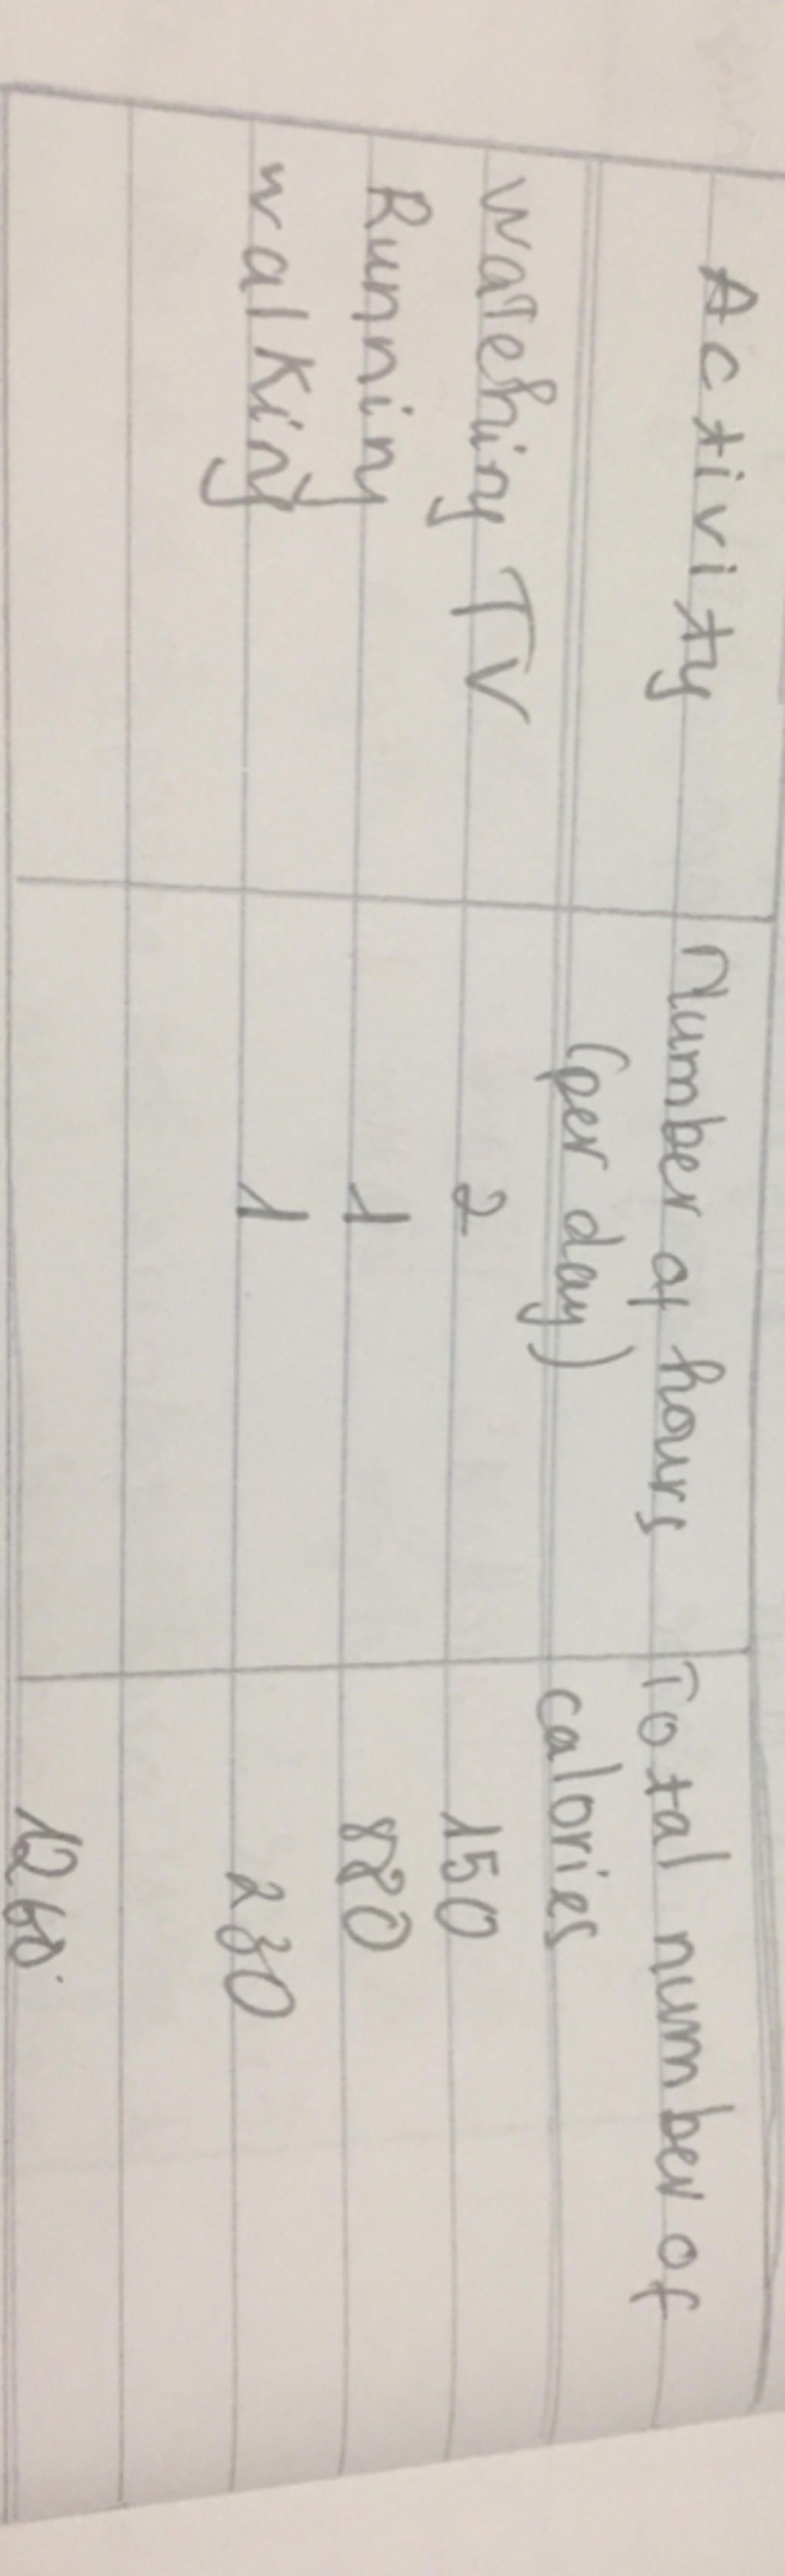 Activity Number of hours Total number of
(per day) calories
Watching TV 2 150
Running 1 880
walking 1 230
1260